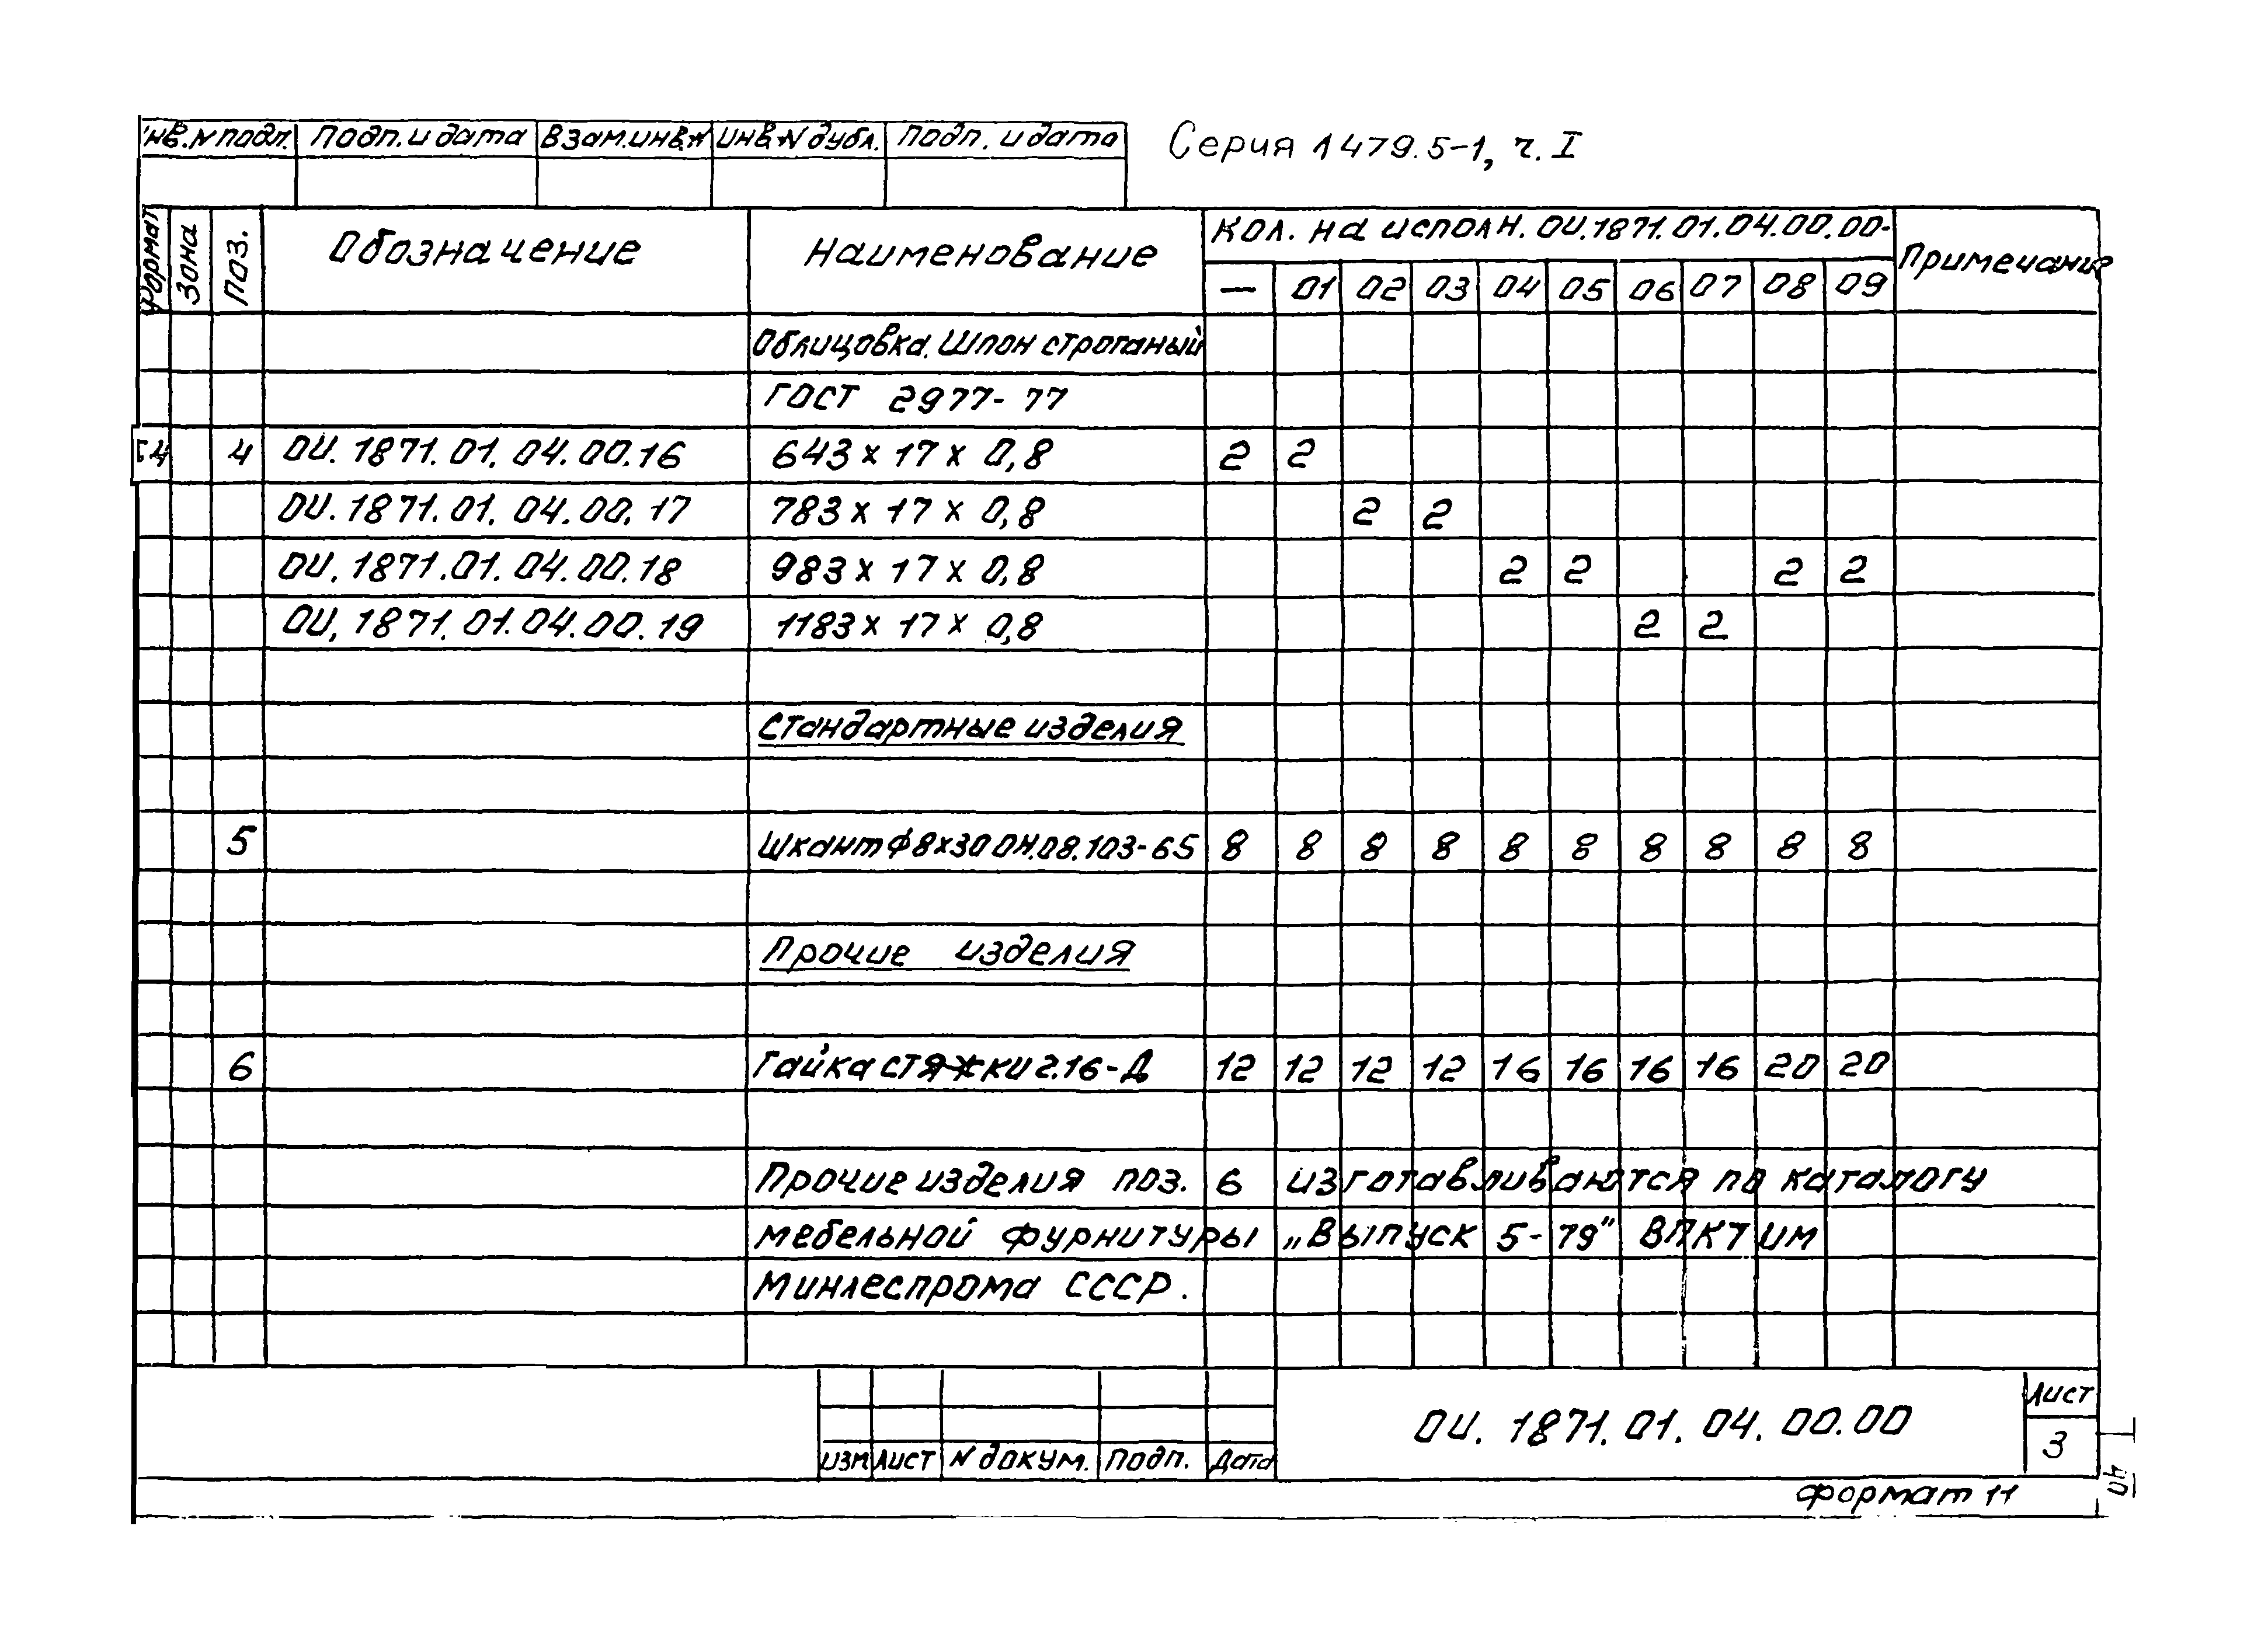 Инв.N подл. Подп. и дата Взам.инв.N Инв.N дубл. Подп. и дата Серия 1479.5-1, ч. I
Формат Зона Поз. Обозначение Наименование Кол. на исполн. ОИ.1871.01.04.00.00- Примечание
— 01 02 03 04 05 06 07 08 09
Облицовка. Шпон строганый
ГОСТ 2977-77
БЧ 4 ОИ.1871.01.04.00.16 643 x 17 x 0,8 2 2
ОИ.1871.01.04.00.17 783 x 17 x 0,8 2 2
ОИ.1871.01.04.00.18 983 x 17 x 0,8 2 2 2 2
ОИ.1871.01.04.00.19 1183 x 17 x 0,8 2 2
Стандартные изделия
5 Шкант ф8x30 ОН.08.103-65 8 8 8 8 8 8 8 8 8 8
Прочие изделия
6 Гайка стяжки 2.16-Д 12 12 12 12 16 16 16 16 20 20
Прочие изделия поз. 6 изготавливаются по каталогу
мебельной фурнитуры „Выпуск 5-79" ВПКТИМ
Минлеспрома СССР.
ОИ.1871.01.04.00.00 Лист
3
Изм Лист N докум. Подп. Дата
Формат 11
40